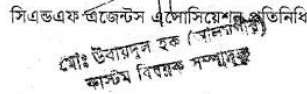 সিএন্ডএফ এজেন্টস এসোসিয়েশন প্রতিনিধি
মোঃ উবায়দুল হক (
কাস্টম বিষয়ক সম্পাদক